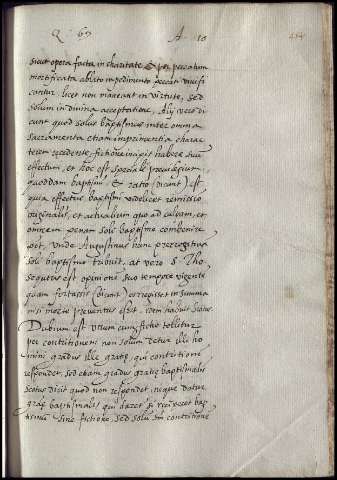 Q. 69 A. 10
sicut opera facta in charitate & per peccatum
mortificata ablato impedimento peccati vivifi
cantur licet non maneant in virtute, sed
solum in divina acceptatione, Alij vero di
cunt quod solus baptismus inter omnia
sacramenta etiam imprimentia charac
terem recedente fictione incipit habere suu
effectum, et hoc est speciale previlegium
quoddam baptismi, & ratio (dicunt) est,
quia effectus baptismi videlicet remissio
originalis, et actualium quo ad culpam, et
omnem penam soli baptismo convenire
pot, unde Augustinus hanc prerogativa
soli baptismo tribuit, at vero S. Tho
sequutus est opinione suo tempore vigente
quam fortasse (dicunt) correxisset in summa
nisi morte preventus esset,
Dubium est utrum cum fictio tollitur
per contritionem non solum detur illi ho
mini gradus ille gratiæ, qui contritioni
respondet, sed etiam gradus gratiæ baptismalis
Scotus dicit quod non respondet, neque datur
gratia baptismalis, qui daret si reciperet bap
tismus sine fictione, sed solum contritione